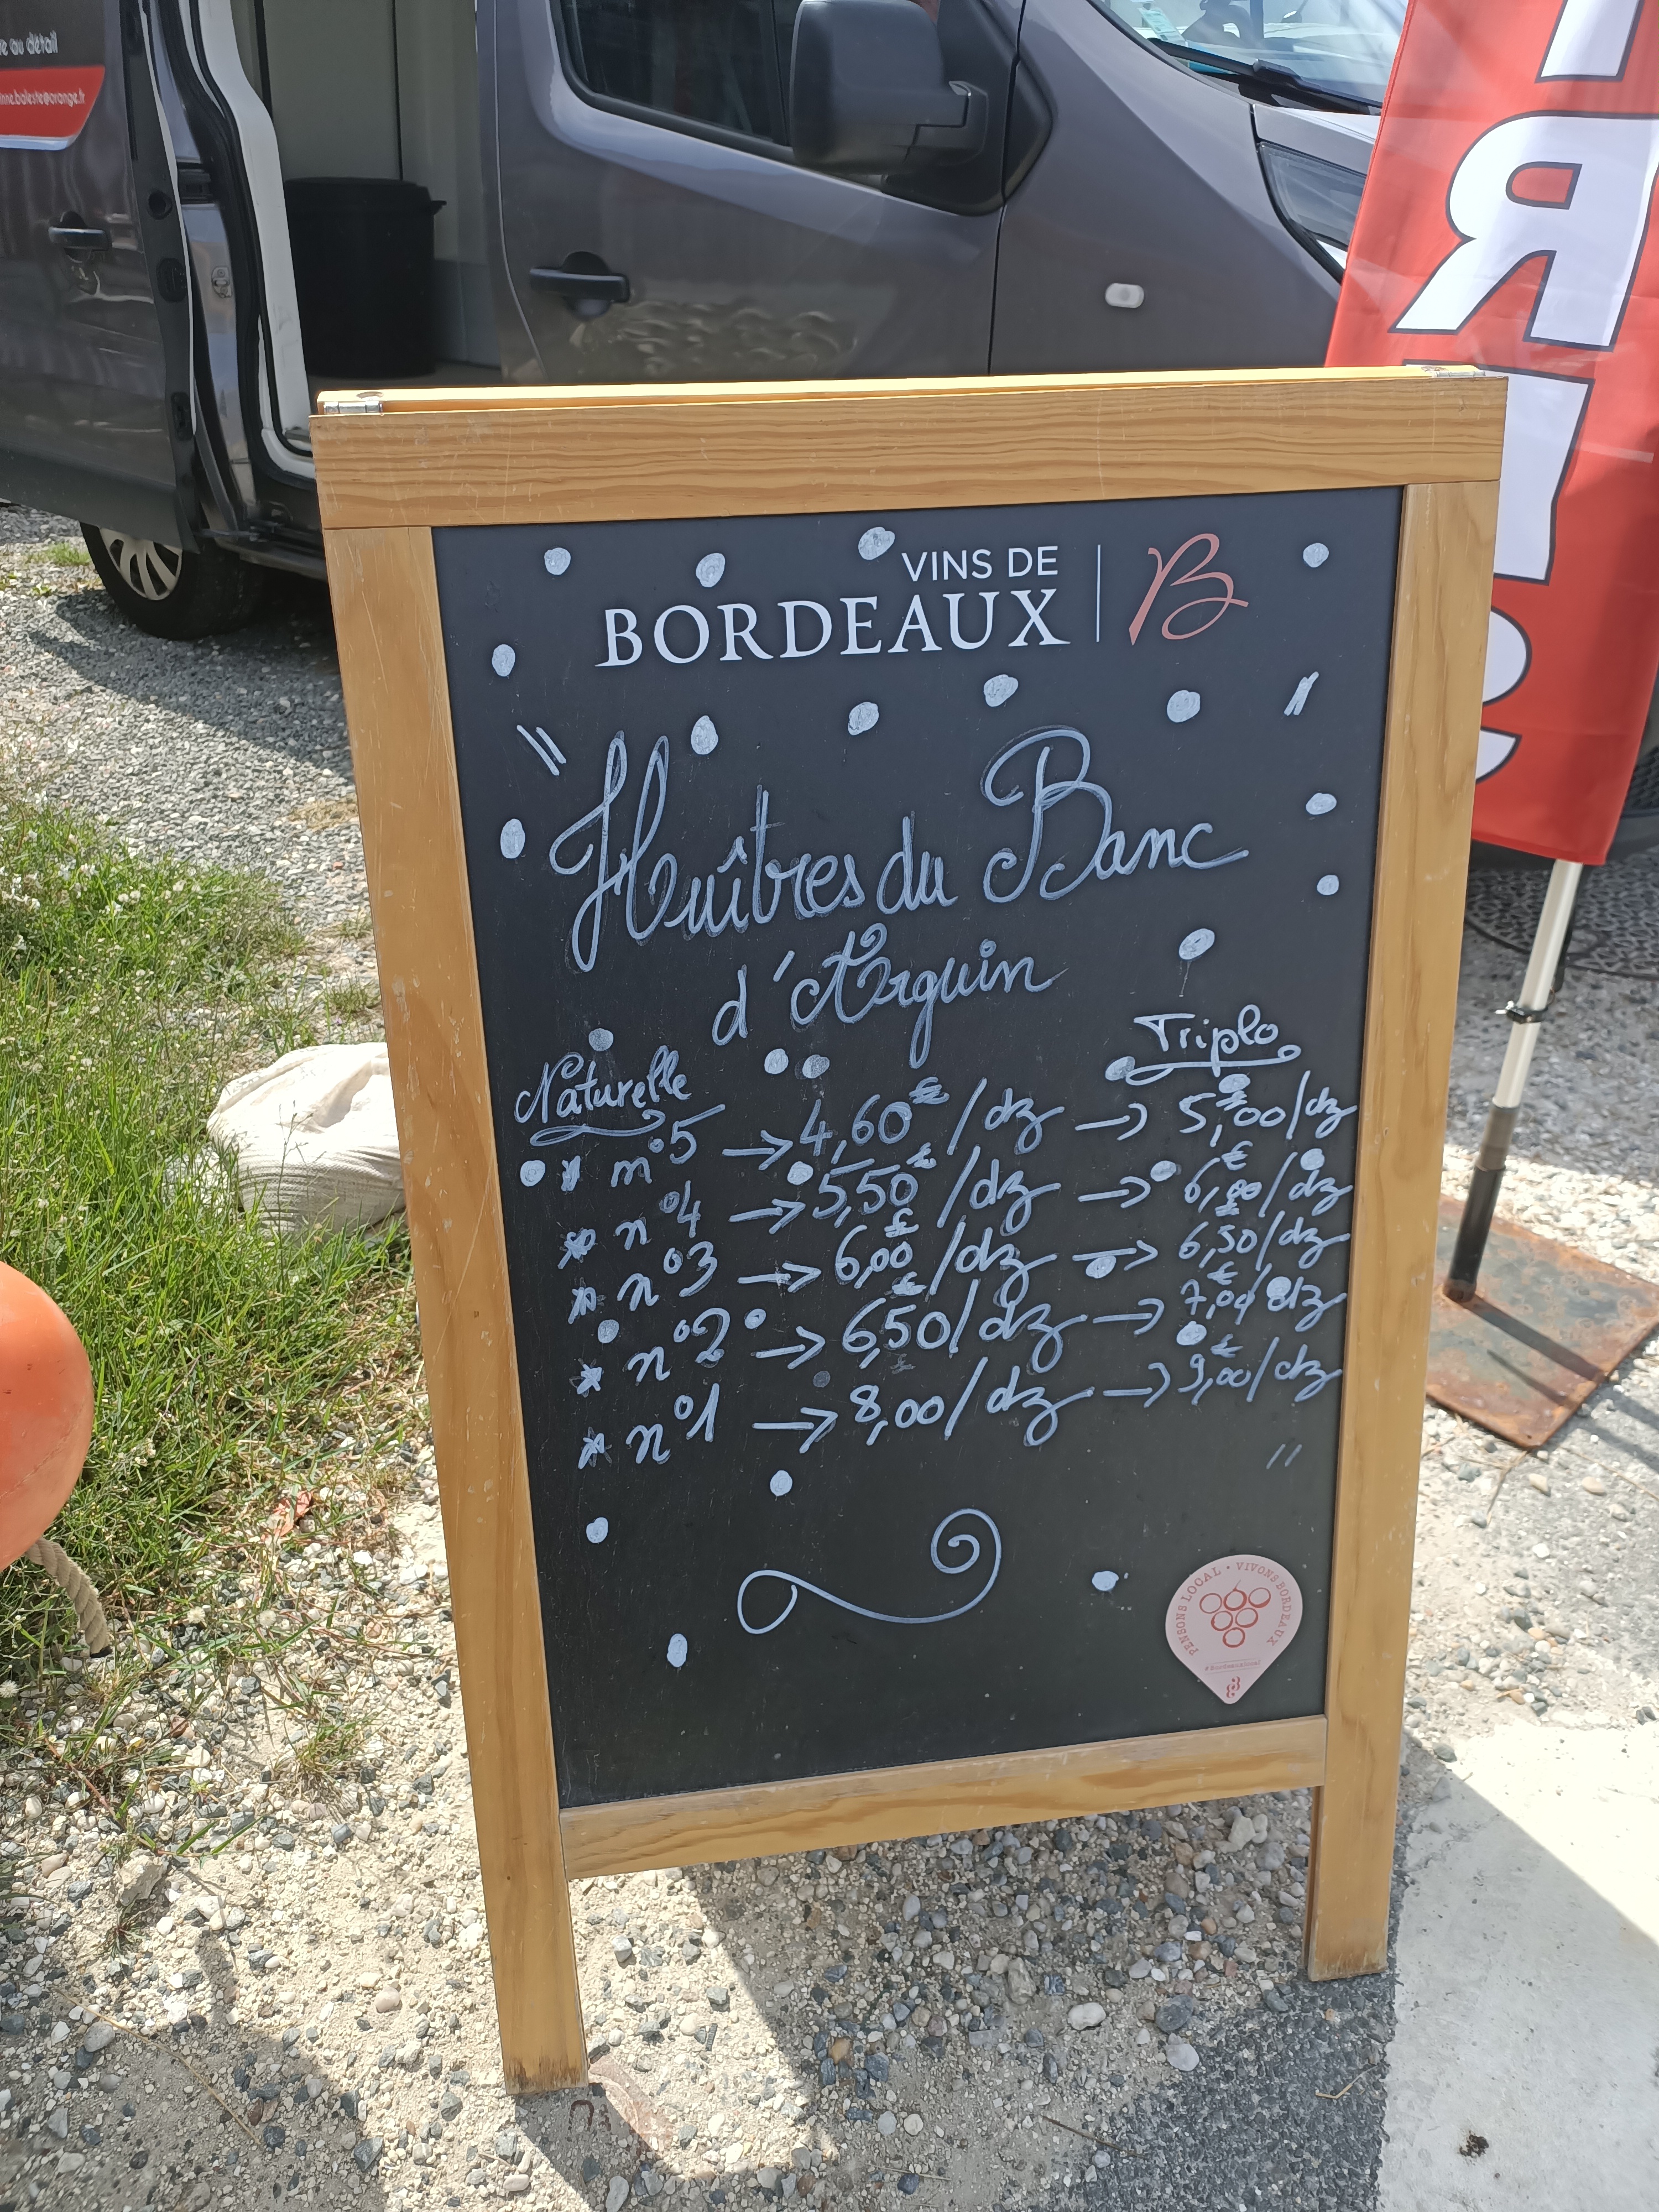 re au détail
inne.baleste@orange.fr
VINS DE
BORDEAUX
B
Huîtres du Banc
d'Arguin
Naturelle Triplo
* n°5 → 4,60€/dz → 5,00€/dz
* n°4 → 5,50€/dz → 6,00€/dz
* n°3 → 6,00€/dz → 6,50€/dz
* n°2 → 6,50€/dz → 7,00€/dz
* n°1 → 8,00/dz → 9,00€/dz
PENSONS LOCAL • VIVONS BORDEAUX
#bordeauxlocal